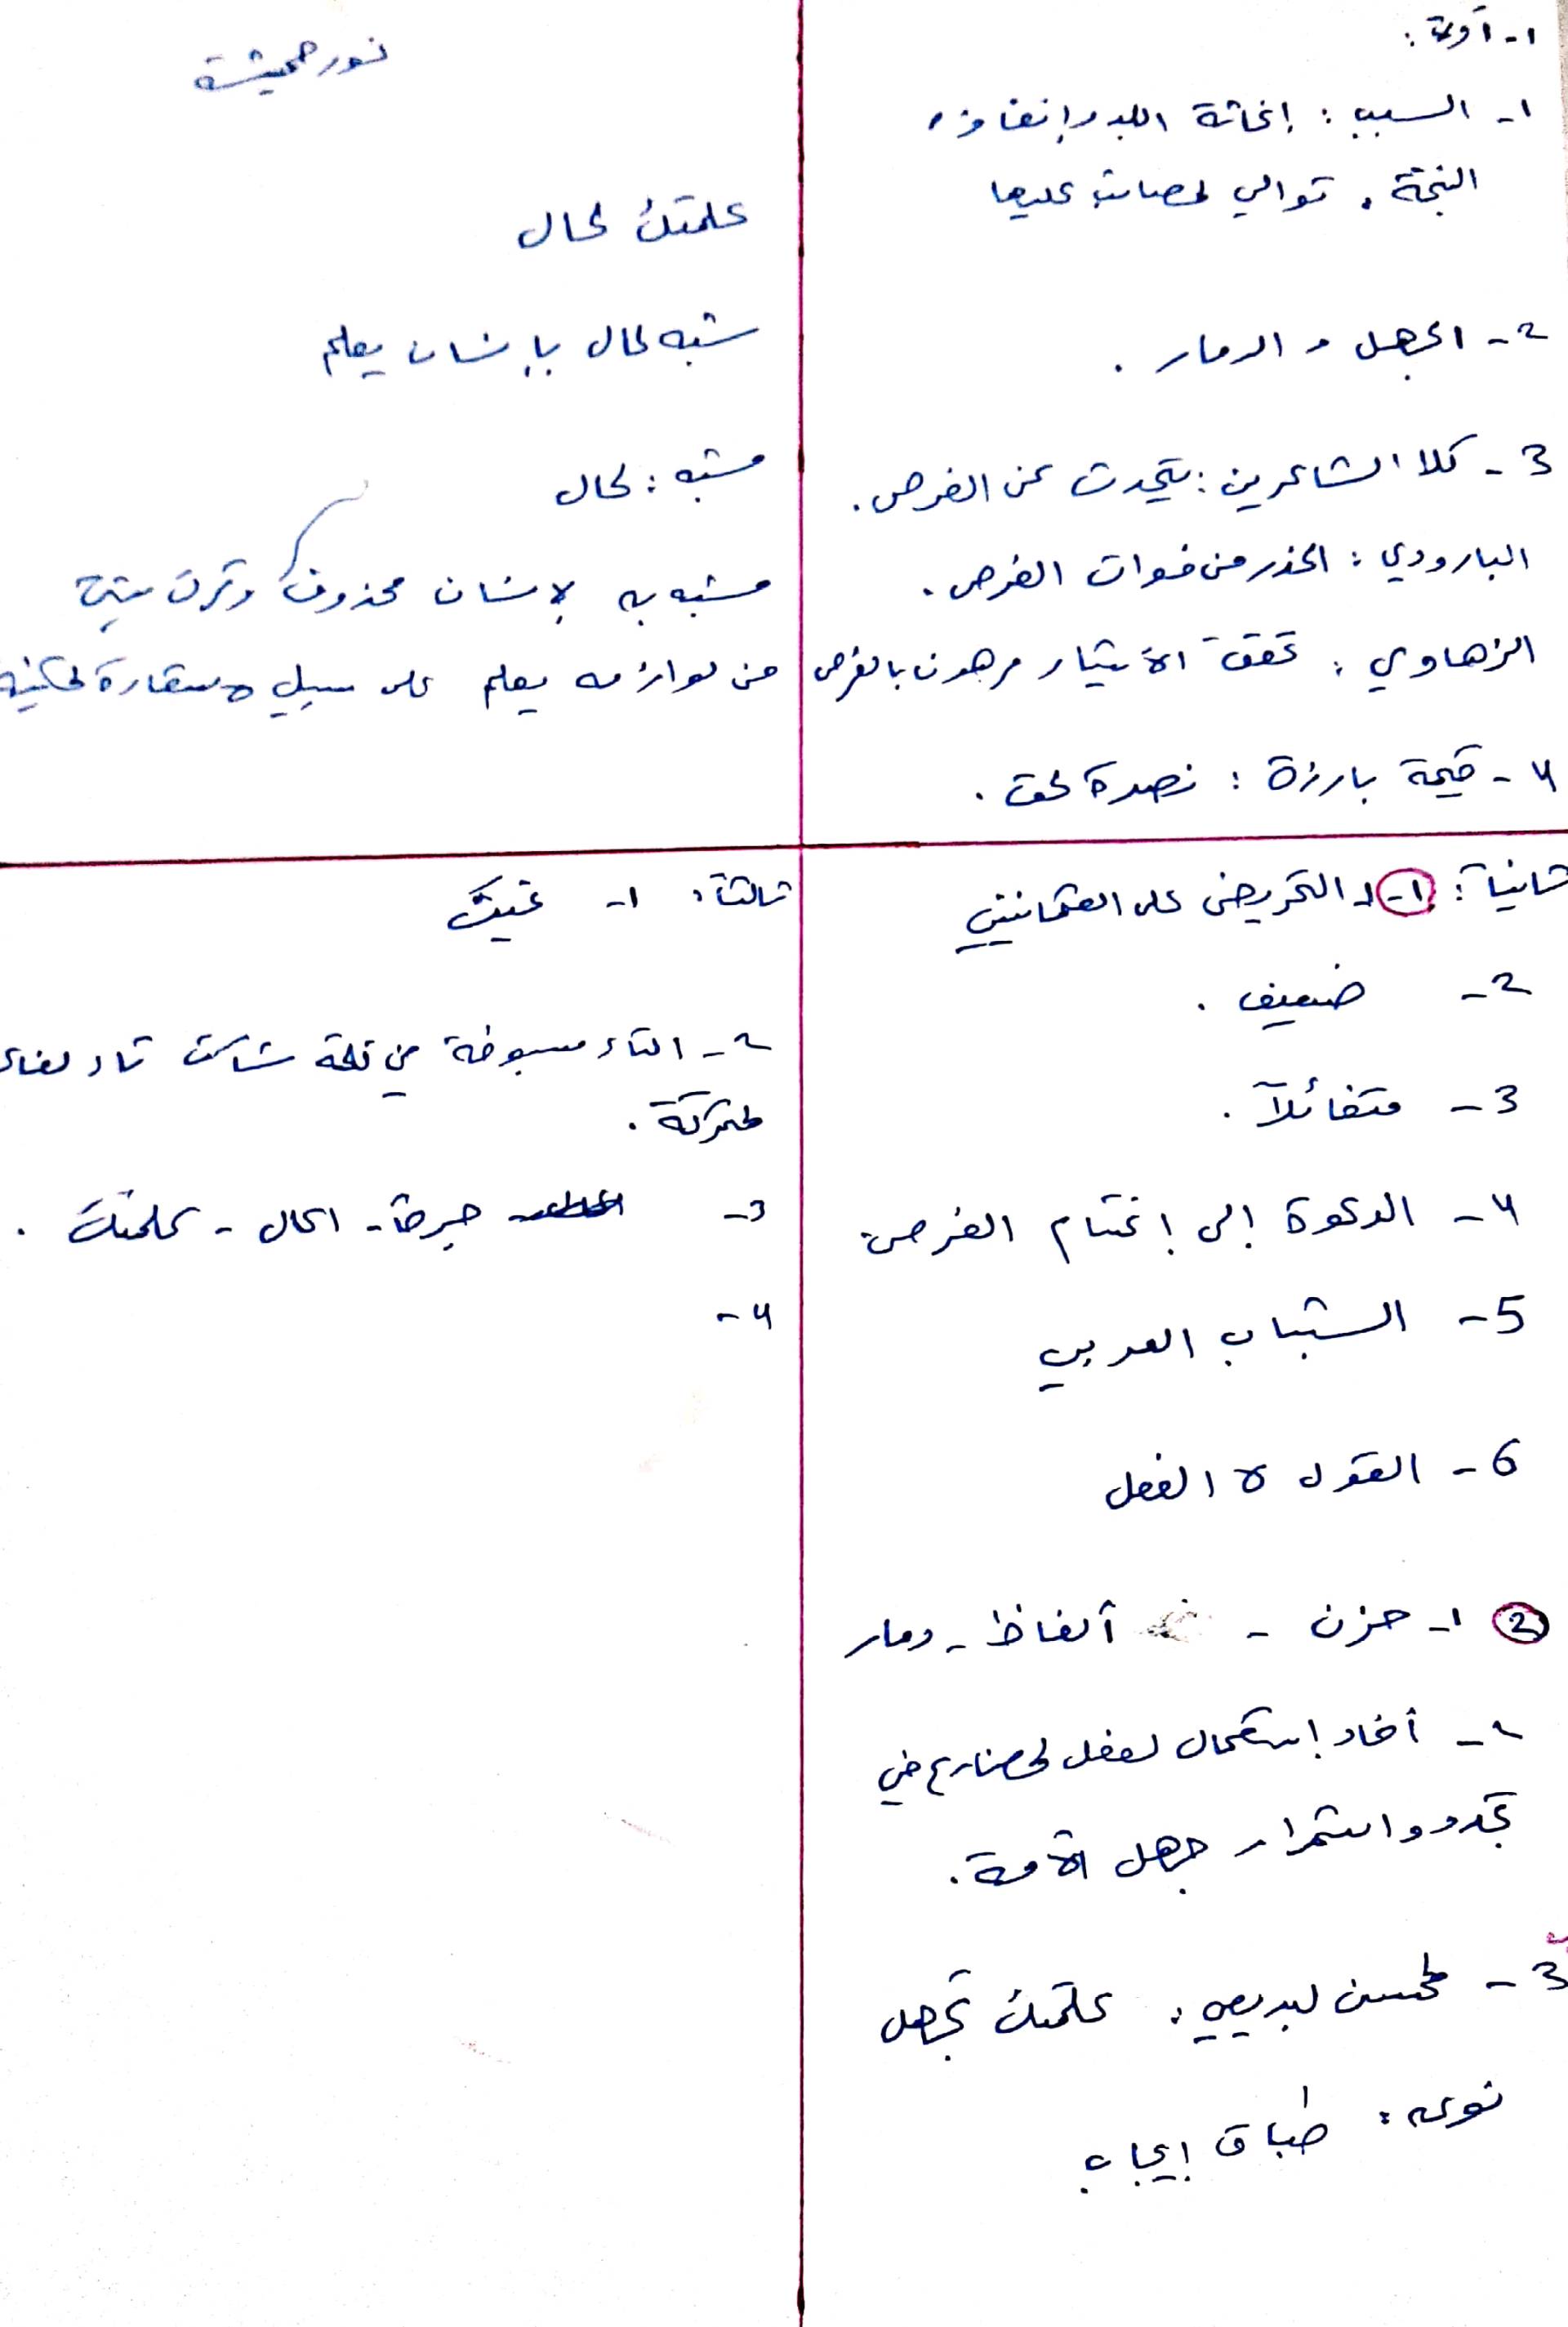 ١- أولاً :
١- السبب : إغاثة البلد وإنقاذه
النتيجة : توالي المصائب عليها
2- الجهل و الدمار .
3- كلا الشاعرين : يتحدث عن الفرص .
البارودي : الحذر من فوات الفرص .
الزهاوي : تحقق مرهون بالفرص
4- قيمة بارزة : نصرة الحق .
نور
علمتك الحال
شبه الحال بإنسان يعلم
مشبه : الحال
مشبه به الإنسان محذوف وترك شيئ
من لوازمه يعلم على سبيل الاستعارة المكنية
ثانياً : ١- التحريض على العثمانيين
2- ضعيف .
3- متفائلاً .
4- الدعوة إلى إغتنام الفرص .
5- الشباب العربي
6- القول لا الفعل
2 ١- حزن - ألفاظ - دمار
2- أفاد إستعمال الفعل المضارع في
تجدد واستمرار جهل الأمة .
3- المحسن البديعي : علمتك تجهل
نوعه : طباق إيجاب
ثالثاً : ١-
2- التاء مبسوطة في كلمة تاء الفاعل
المتحركة .
3- حيرة - الحال - علمتك .
4-